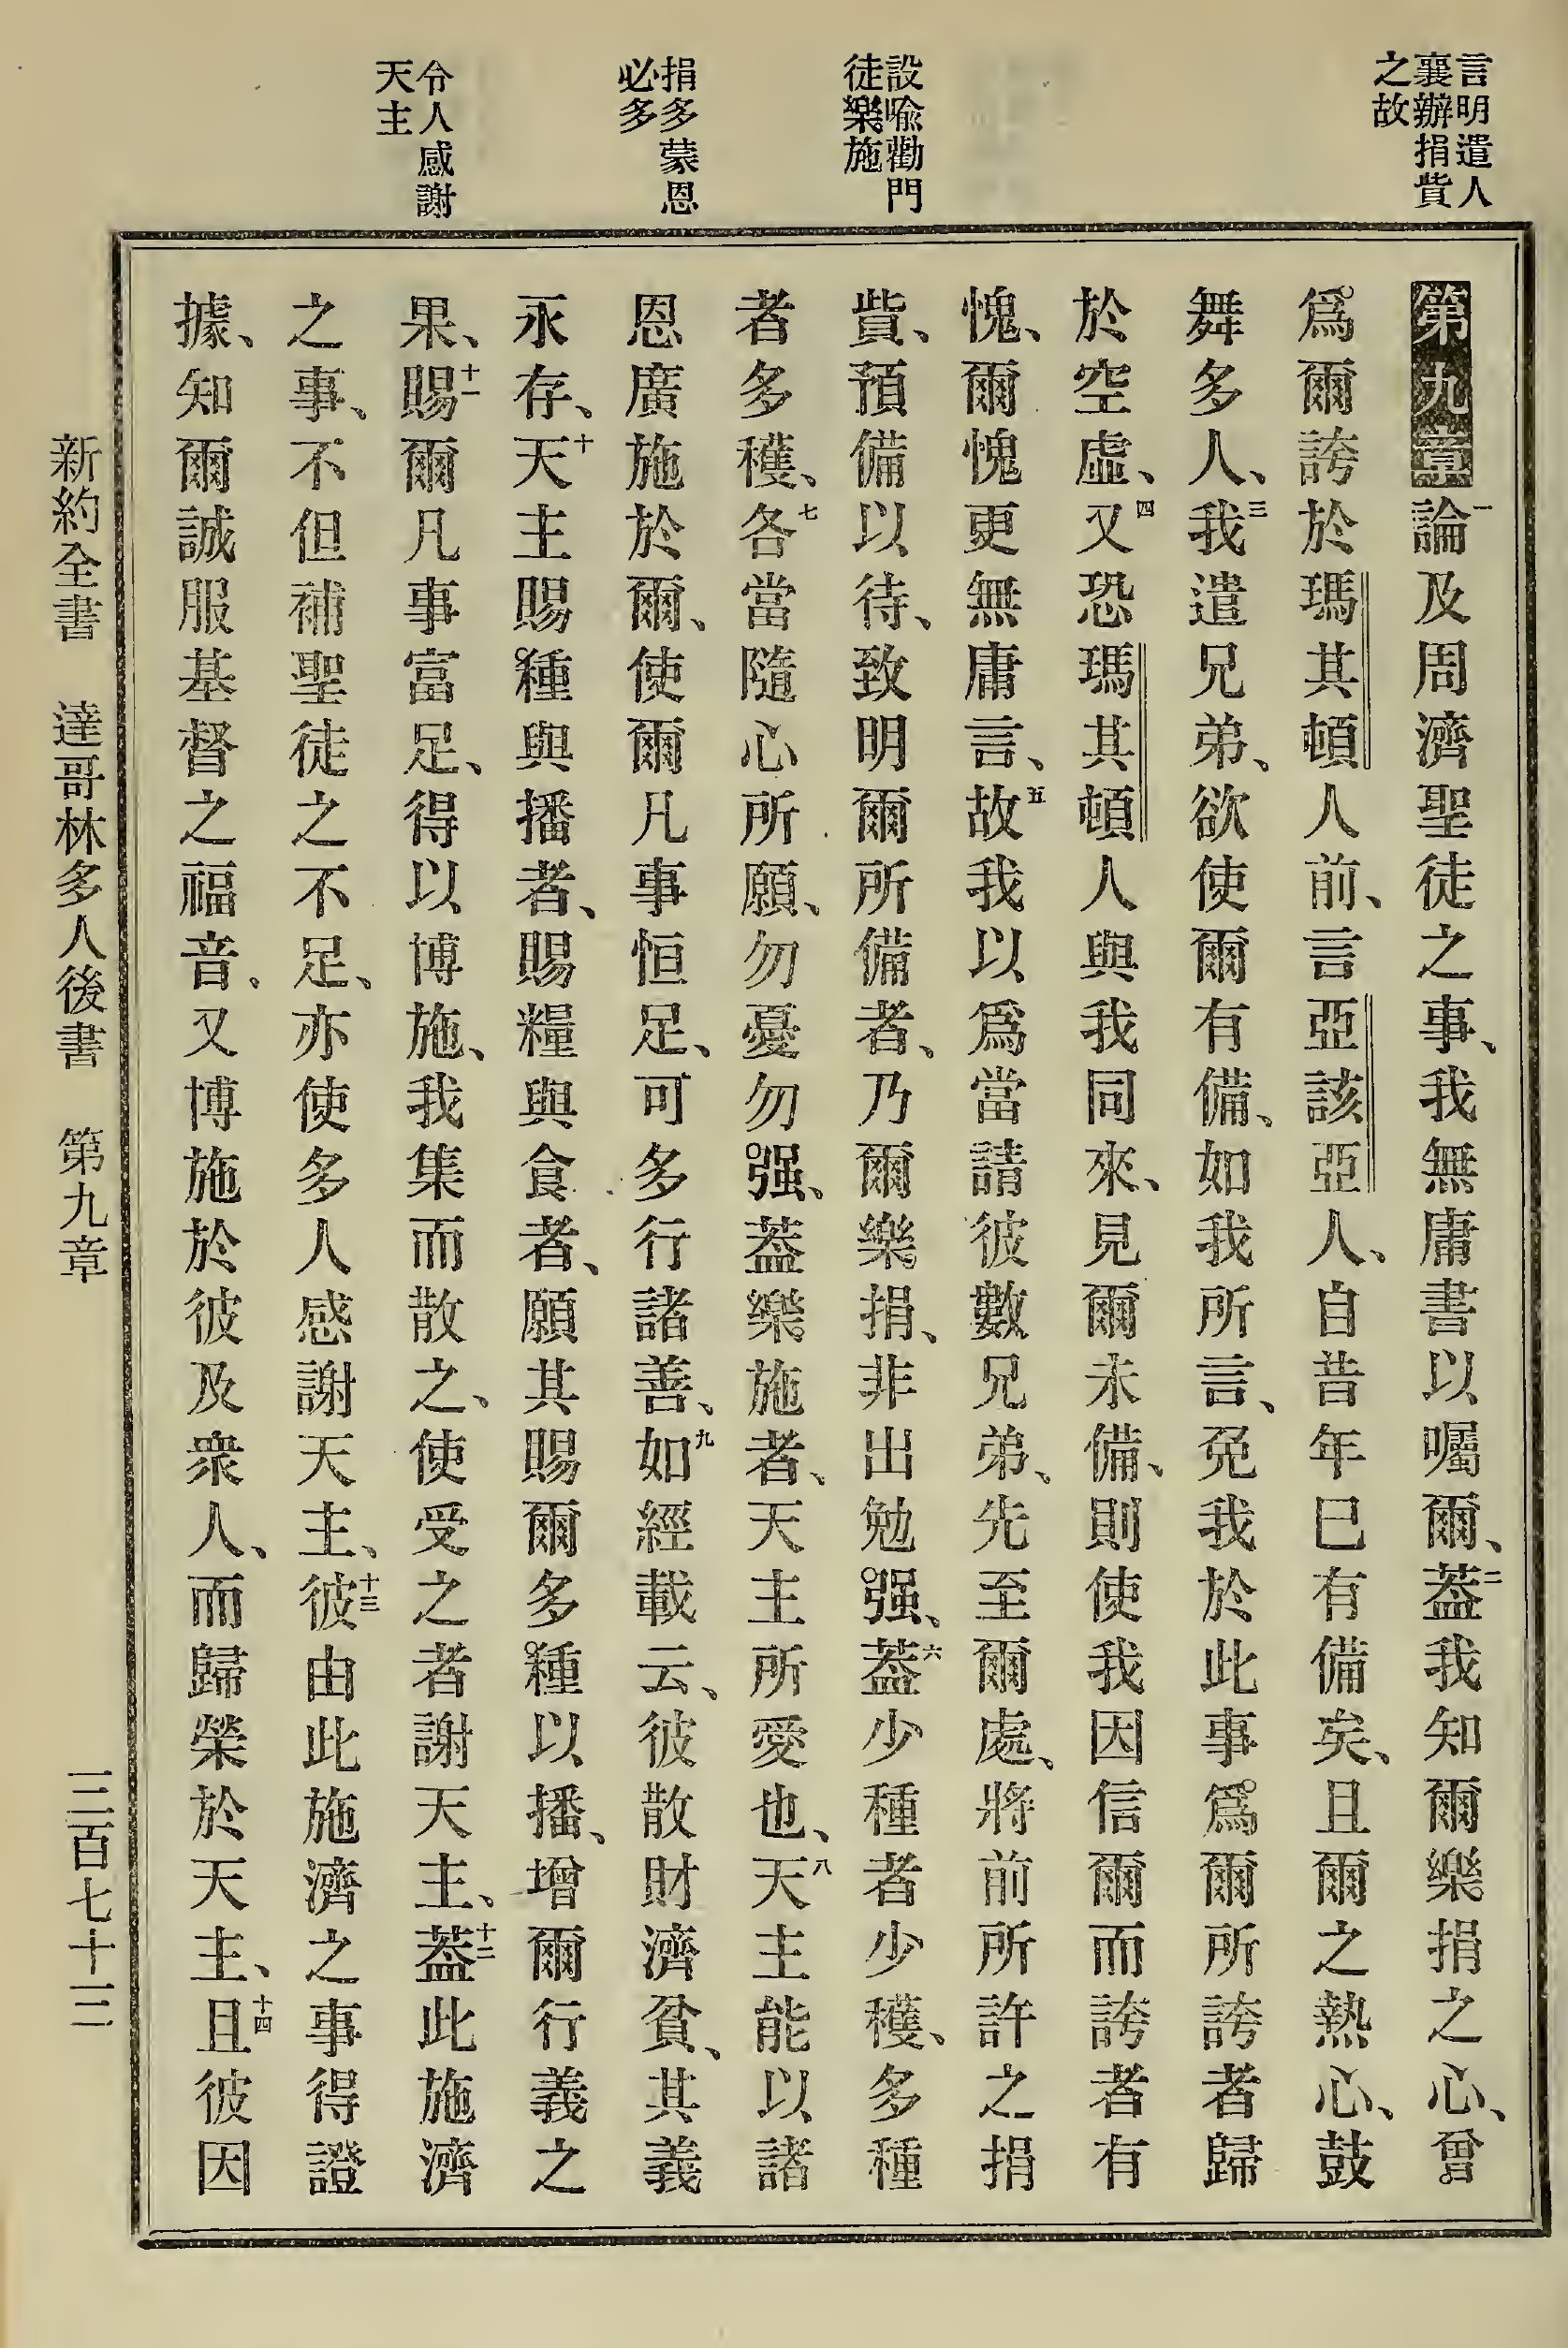 言明遣人
襄辦捐貲
之故
設喩勸門
徒樂施
捐多蒙恩
必多
令人感謝
天主
第九章一論及周濟聖徒之事、我無庸書以囑爾、二蓋我知爾樂捐之心、曾
爲爾誇於瑪其頓人前、言亞該亞人、自昔年已有備矣、且爾之熱心、鼓
舞多人、三我遣兄弟、欲使爾有備、如我所言、免我於此事爲爾所誇者歸
於空虛、四又恐瑪其頓人與我同來、見爾未備、則使我因信爾而誇者有
愧、爾愧更無庸言、五故我以爲當請彼數兄弟、先至爾處、將前所許之捐
貲、預備以待、致明爾所備者、乃爾樂捐、非出勉强、六蓋少種者少穫、多種
者多穫、七各當隨心所願、勿憂勿强、蓋樂施者、天主所愛也、八天主能以諸
恩廣施於爾、使爾凡事恒足、可多行諸善、九如經載云、彼散財濟貧、其義
永存、十天主賜種與播者、賜糧與食者、願其賜爾多種以播、增爾行義之
果、十一賜爾凡事富足、得以博施、我集而散之、使受之者謝天主、十二蓋此施濟
之事、不但補聖徒之不足、亦使多人感謝天主、十三彼由此施濟之事得證
據、知爾誠服基督之福音、又博施於彼及衆人、而歸榮於天主、十四且彼因
新約全書 達哥林多人後書 第九章 三百七十三